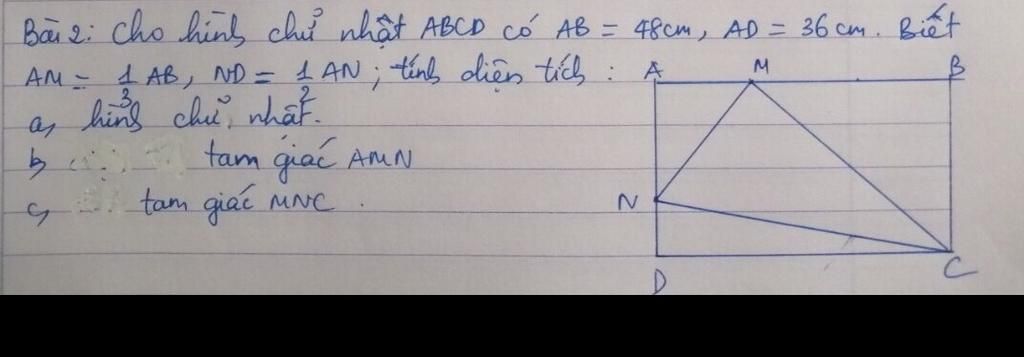 Bài 2: Cho hình chữ nhật ABCD có AB = 48cm, AD = 36cm. Biết
AM = 1/3 AB, ND = 1/2 AN; tính diện tích:
a, hình chữ nhật.
b, tam giác AMN
c, tam giác MNC.
A M B
N
D C